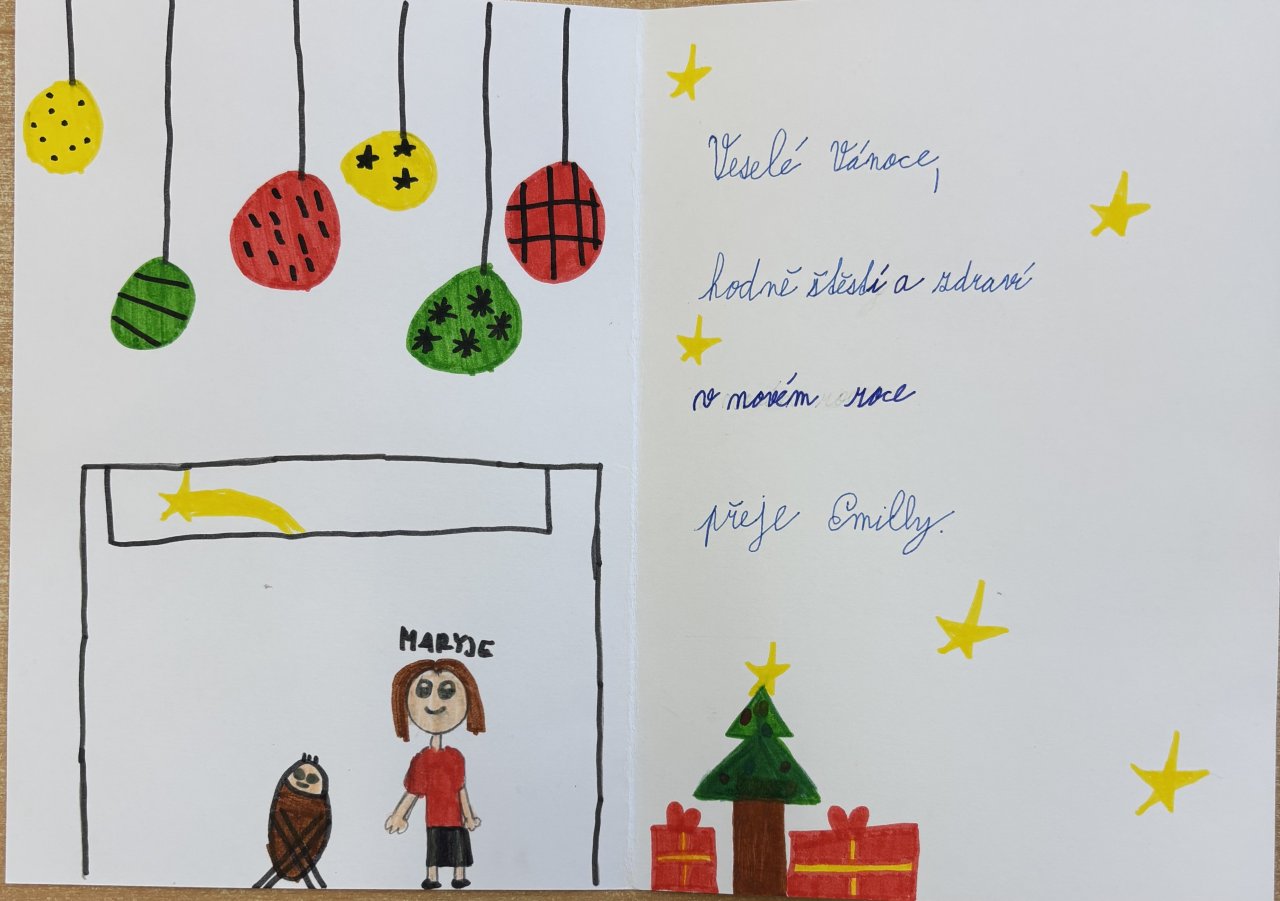 MARYJE
Veselé Vánoce,
hodně štěstí a zdraví
v novém roce
přeje Emilly.